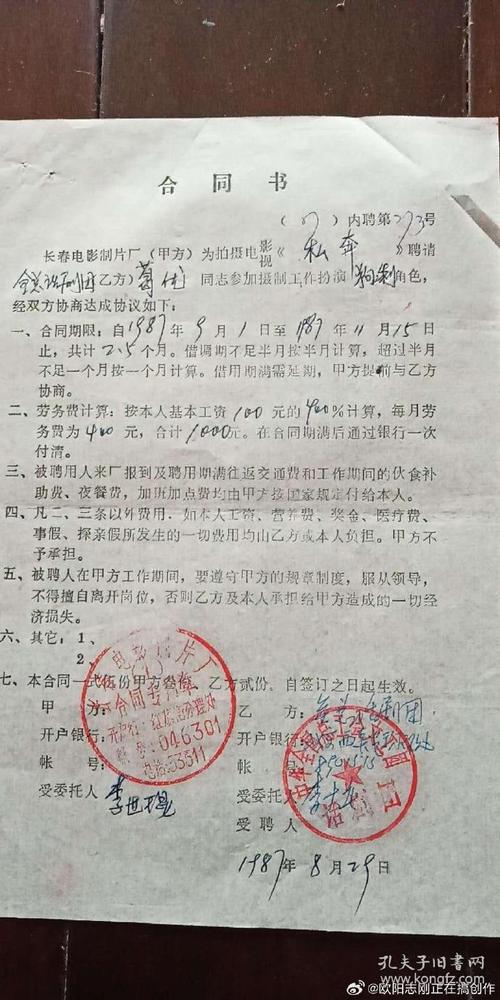 合同书
(87)内聘第273号
长春电影制片厂(甲方)为拍摄电影视《私奔》聘请
全总话剧团(乙方)葛优同志参加摄制工作扮演狗剩角色,
经双方协商达成协议如下:
一、合同期限:自1987年9月1日至1987年11月15日
止,共计2.5个月。借调期不足半月按半月计算,超过半月
不足一个月按一个月计算。借用期满需延期,甲方提前与乙方
协商。
二、劳务费计算:按本人基本工资100元的400%计算,每月劳
务费为400元,合计1000元。在合同期满后通过银行一次
付清。
三、被聘用人来厂报到及聘用期满往返交通费和工作期间的伙食补
助费、夜餐费,加班加点费均由甲方按国家规定付给本人。
四、凡二、三条以外费用.如本人工资、营养费、奖金、医疗费、
事假、探亲假所发生的一切费用均由乙方或本人负担。甲方不
予承担。
五、被聘人在甲方工作期间,要遵守甲方的规章制度,服从领导,
不得擅自离开岗位,否则乙方及本人承担给甲方造成的一切经
济损失。
六、其它:1、
2、
七、本合同一式伍份甲方叁份,乙方贰份,自签订之日起生效。
甲方: 乙方:全总话剧团
开户银行: 开户银行:
帐号: 帐号:
受委托人 李世 受委托人
受聘人
1987年8月29日
电影制片厂
合同专用章
046301
电话:53511
中华全国总工会
话剧团
孔夫子旧书网
kongfz.com
@欧阳志刚正在搞创作